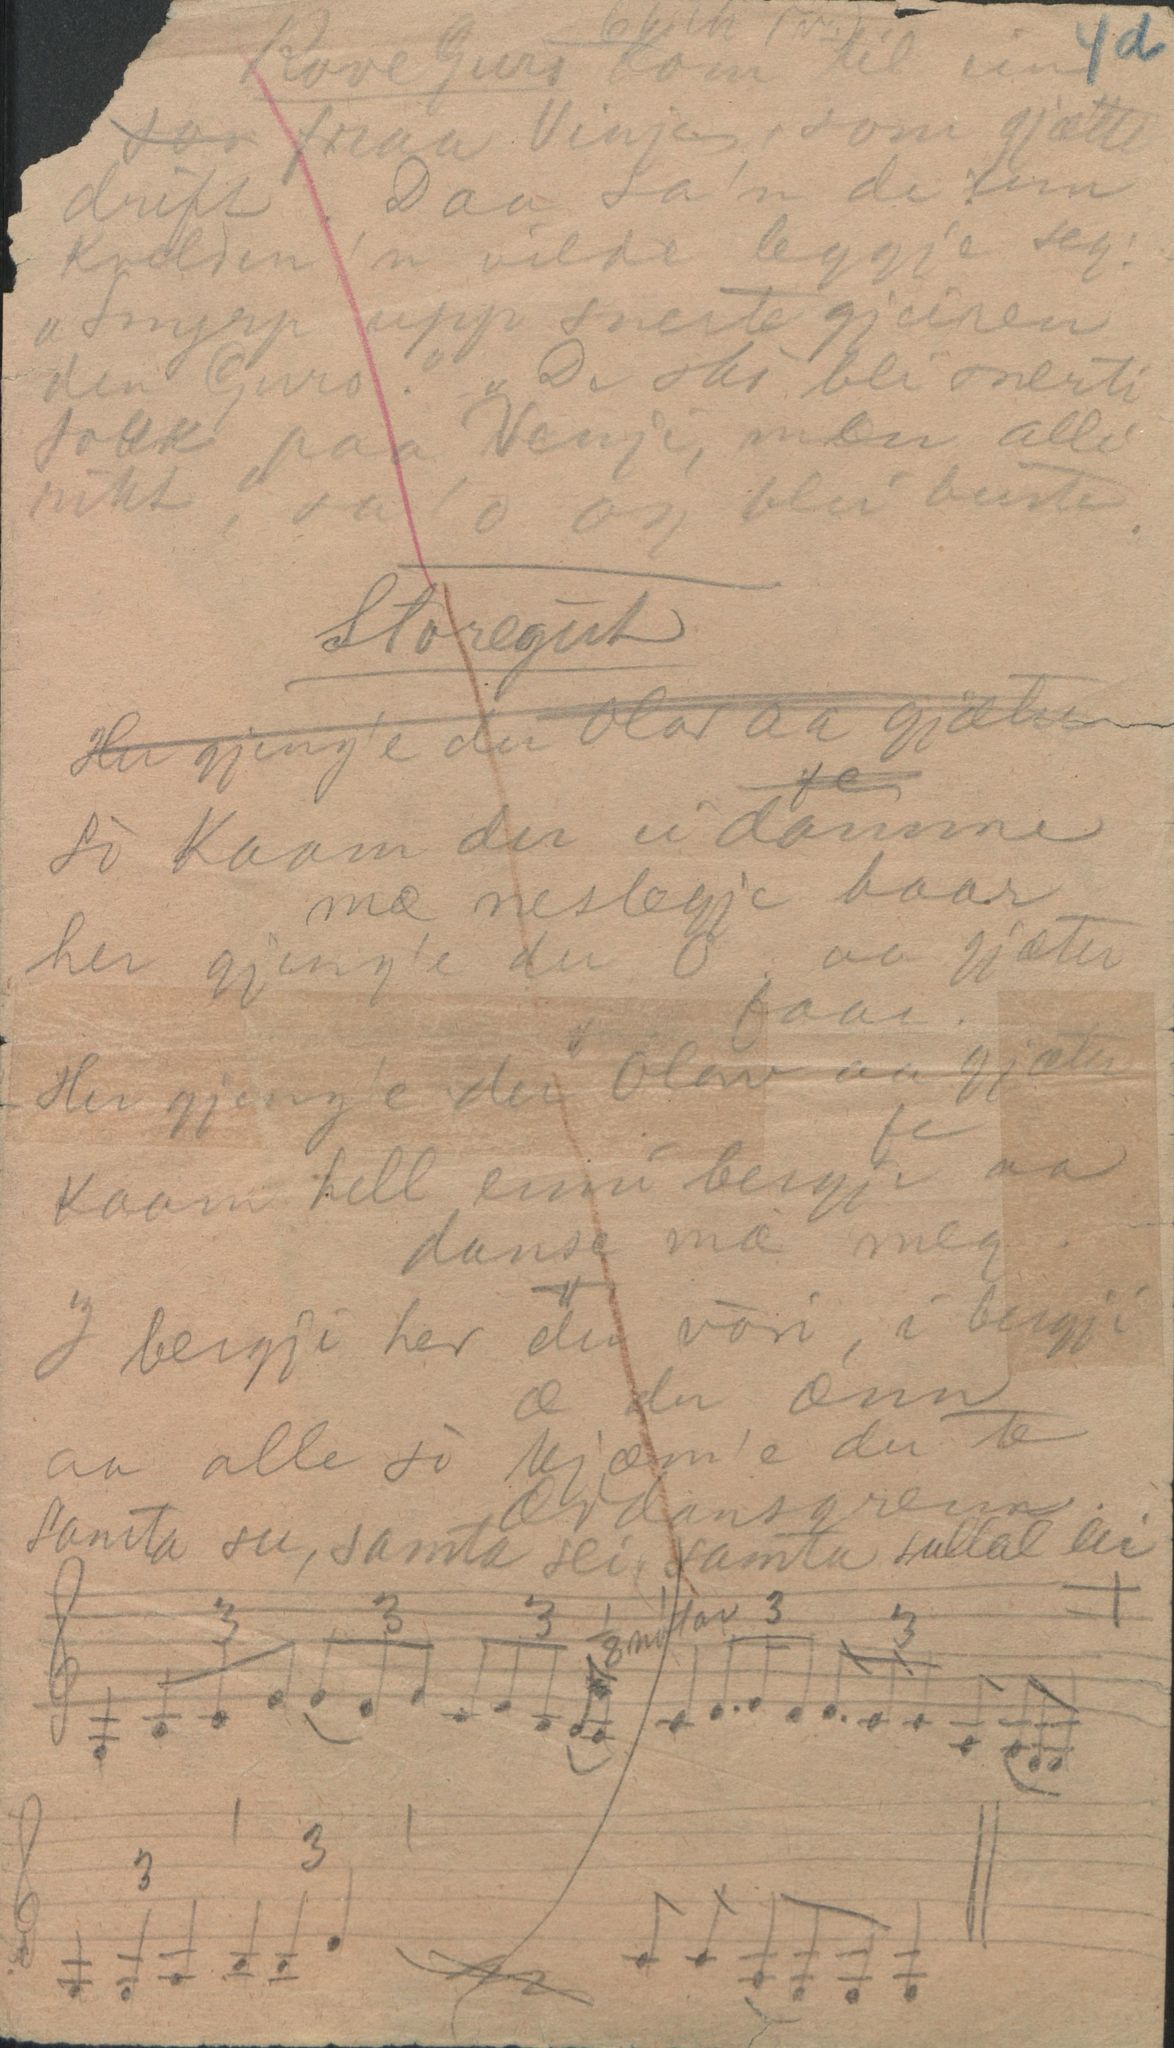 4d
Rove Guro kom til ein
som fraa Vinje, som gjætte
drift. Daa sa'n de um
kvelden 'n vilde leggje seg:
"Snyrp upp snertegjeiren
den Guro." "De sko bli snerti
folkk paa Venji, men alli
rikt," sa 'o og blei burte.
Storegut
Her gjeng'e du Olav aa gjæter
fe
Sò kaam du i damme
mæ neslegje haar
her gjeng'e du O. aa gjæter
faar.
Her gjeng'e du Olav aa gjæter
fe
kaam hell inni bergje aa
danse mæ meg.
I bergji her du vòri, i bergji
æ du ænn
aa alle sò kjæm'e du te
ærdansgrenn.
Samta su, samta sei, samta sullal lei
3 3 3 1/8 notar 3 3
3 3